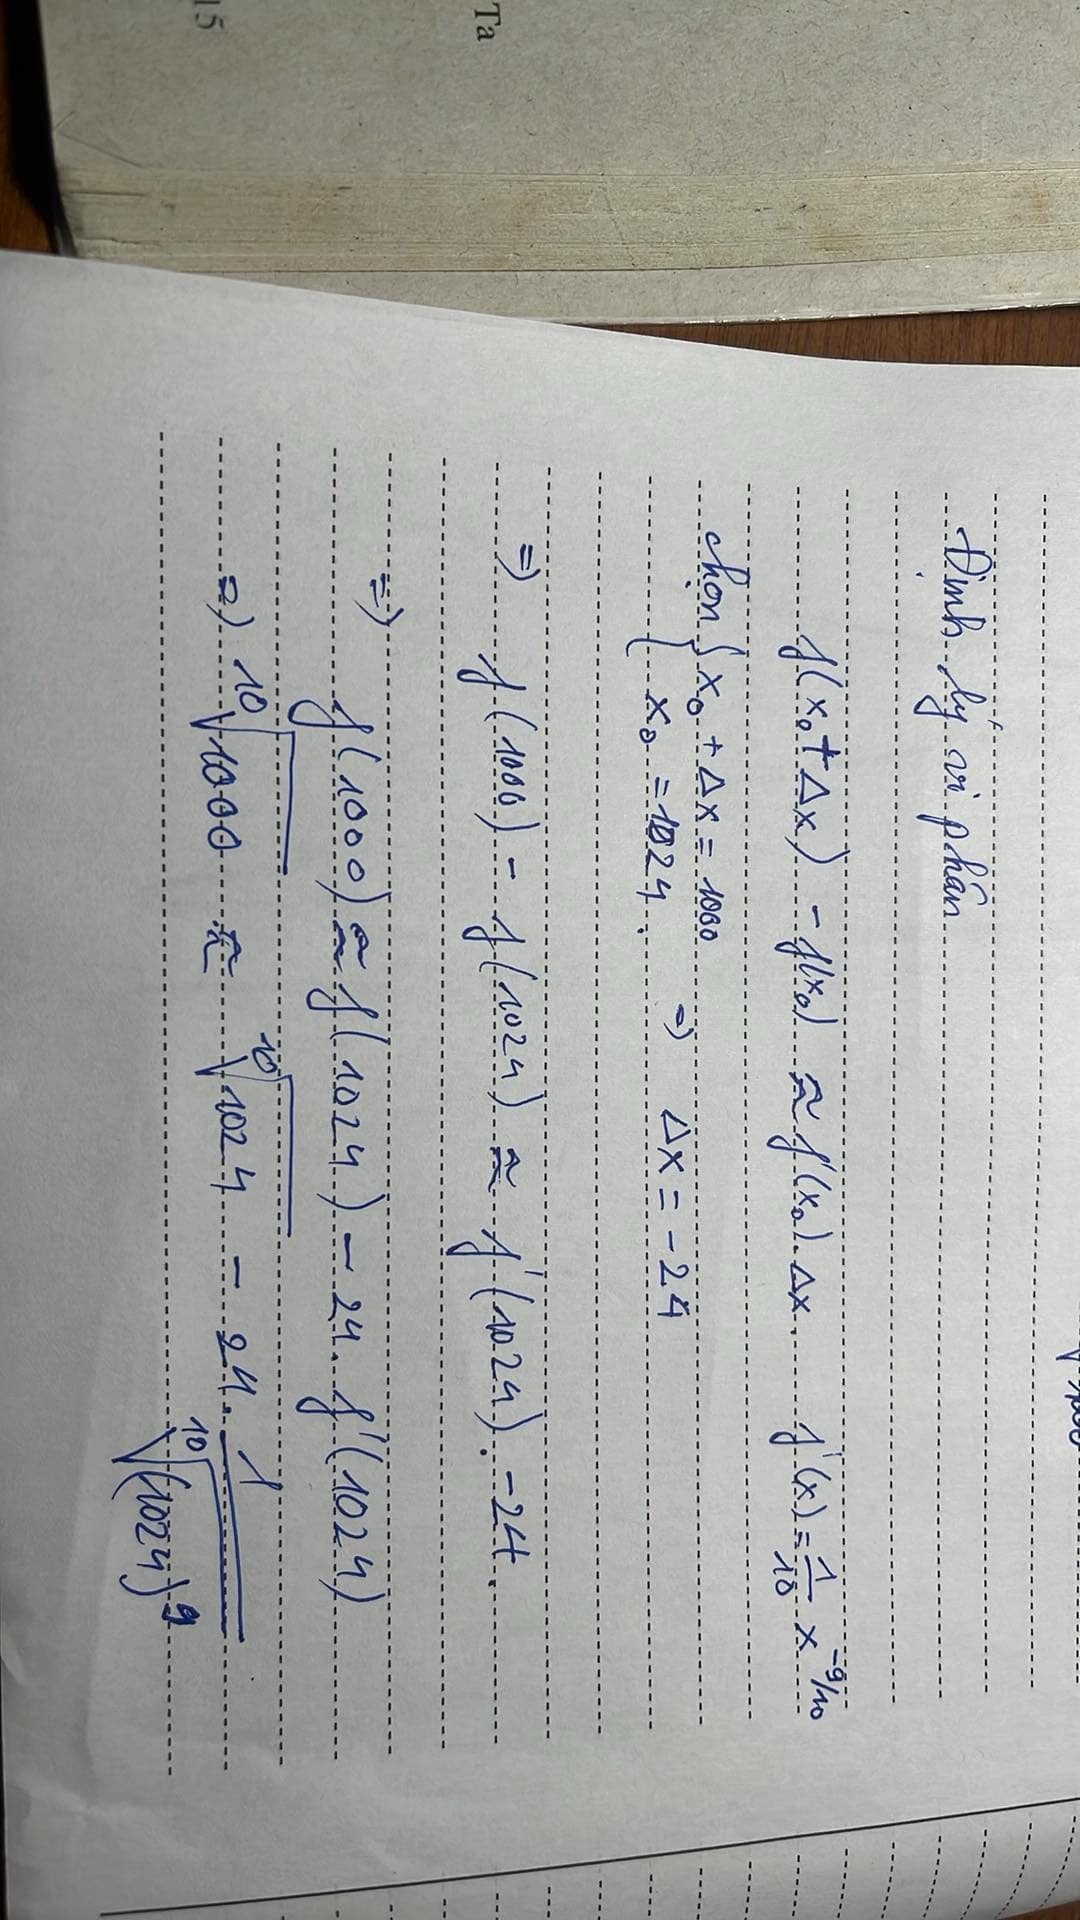 Định lý vi phân
f(x₀+Δx) - f(x₀) ≈ f'(x₀).Δx. f'(x) = 1/10 x^-9/10
chọn { x₀ + Δx = 1000
x₀ = 1024. => Δx = -24
=> f(1000) - f(1024) ≈ f'(1024). -24.
Ta
=> f(1000) ≈ f(1024) - 24. f'(1024)
=> ¹⁰√1000 ≈ ¹⁰√1024 - 24. 1/¹⁰√(1024)⁹
15